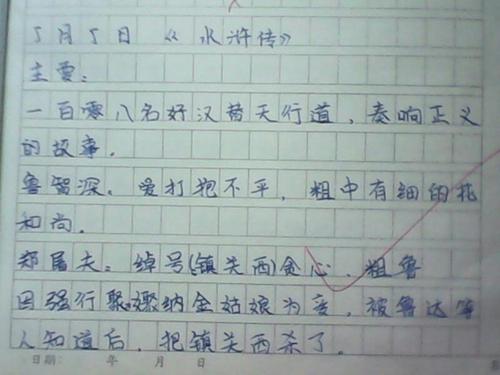 5月5日 《水浒传》
主要:
一百零八名好汉替天行道,奏响正义
的故事.
鲁智深、爱打抱不平,粗中有细的花
和尚.
郑屠夫:绰号(镇关西)贪心、粗鲁
因强行聚嫐纳金姑娘为妾,被鲁达等
人知道后,把镇关西杀了.
日期: 年 月 日